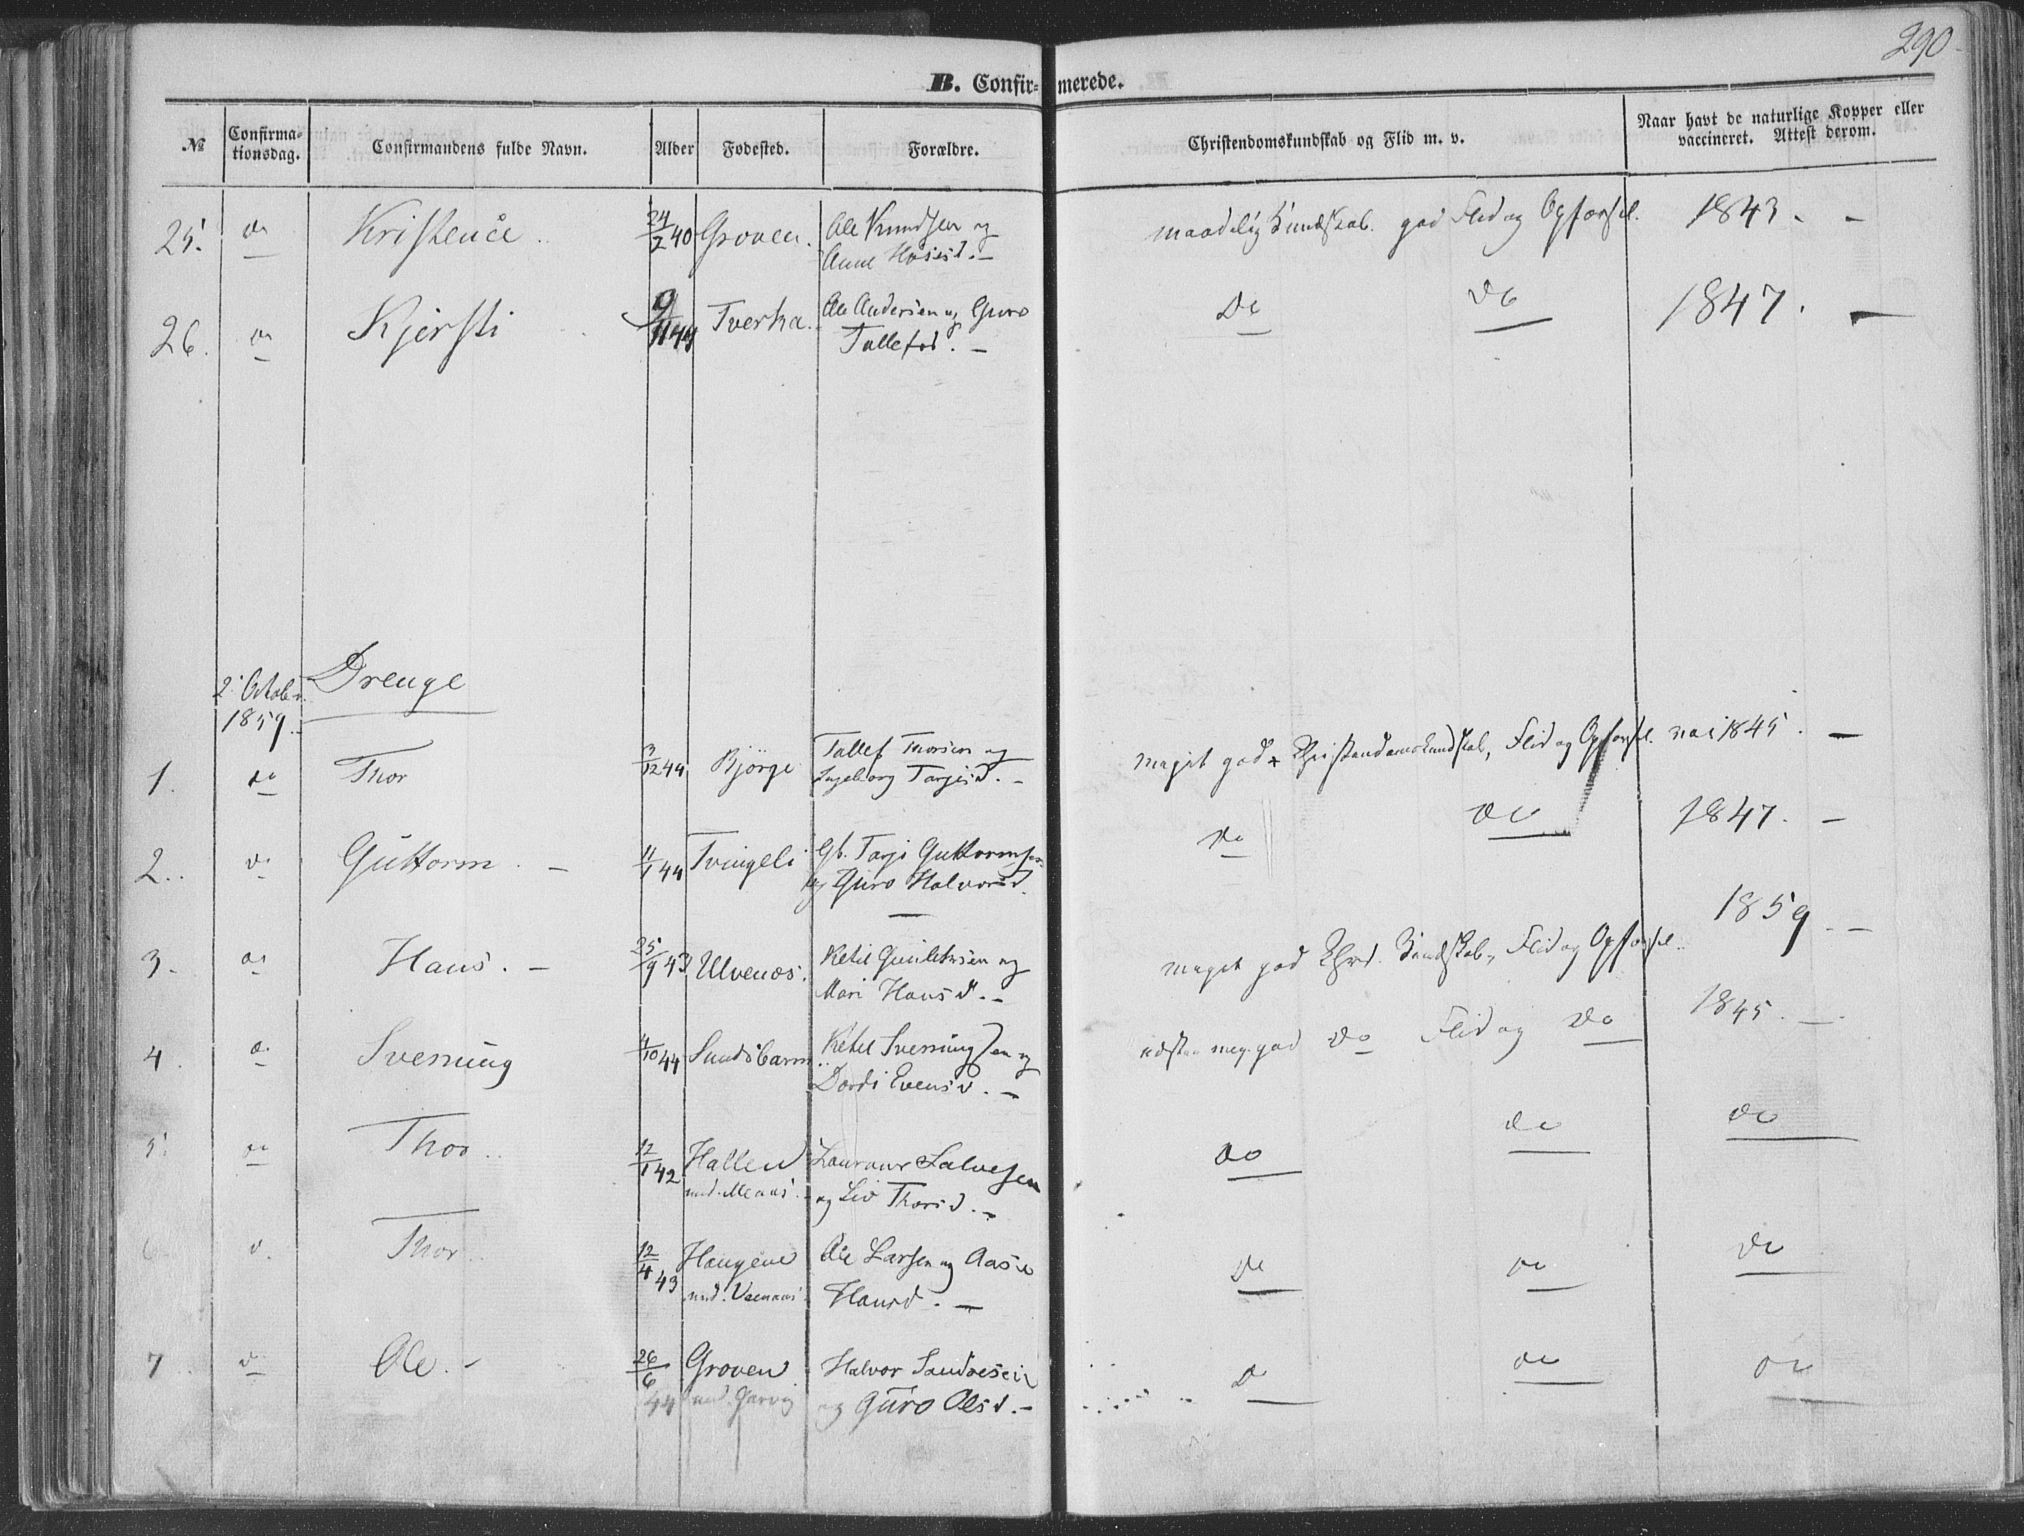 290
B. Confir- merede.
№ Confirma- tionsdag. Confirmandens fulde Navn. Alder Fødested. Forældre. Christendomskundskab og Flid m. v. Naar havt de naturlige Kopper eller vaccineret. Attest derom.
25. do Kristence 24/2 40 Groven. Ole Knudsen og maadelig Kundskab. god Flid og Opførsel. 1843. -
Anne
26. do Kjersti 9/11 44 Tverha. Ole Andersen og Guro do do 1847. -
Tallefsd. -
2. October Drenge
1859.
1. do Thor 3/12 44 Bjørge Tallef Thorsen og meget god Christendomskundskab, Flid og Opførsel. 1845. -
Ingeborg Tarjeisd. -
2. do Guttorm. - 11/1 44 Tvingeli Gb. Tarje Guttormsen do do 1847. -
og Guro Halvorsd.
3. do Hans. - 25/9 43 Ulvenes. Ketil og meget god Chrd. Kundskab, Flid og Opførsel. 1859. -
Mari Hansd. -
4. do Svenning 4/10 44 Sundsbarm Ketil Svenningsen og næsten meg. god do Flid og do 1845. -
Dordi Evensd. -
5. do Thor 12/1 42 Hallen Laurans Salvesen do do do
og Liv Thorsd. -
6 d. Thor 12/4 43 Haugene Ole Larsen og Aase do do do
Hansd. -
7 do Ole. - 26/6 44 Groven Halvor Sandresen do do do
og Guro Olsd. -